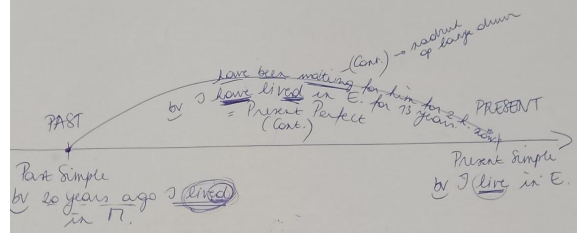 (Cont.) → nadruk
op lange duur
have been waiting for him for 2 h. now
bv I have lived in E. for 13 years.
= Present Perfect
(Cont.)
PAST
PRESENT
Past Simple
bv 20 years ago I lived
in M.
Present Simple
bv I live in E.